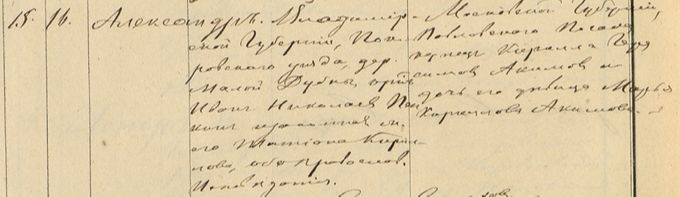 15. 16. Александръ. Владимір-
ской Губерніи, Пок-
ровскаго уѣзда, дер.
Малой Дубны, кр.
Иванъ Николаевъ
и законная жена
его Татіана Кирил-
лова, оба православ.
Исповѣданія.
Московской Губерніи,
Павловскаго Посада
купецъ Кириллъ
Акимовъ и
дочь его дѣвица Марья
Кириллова Акимова.